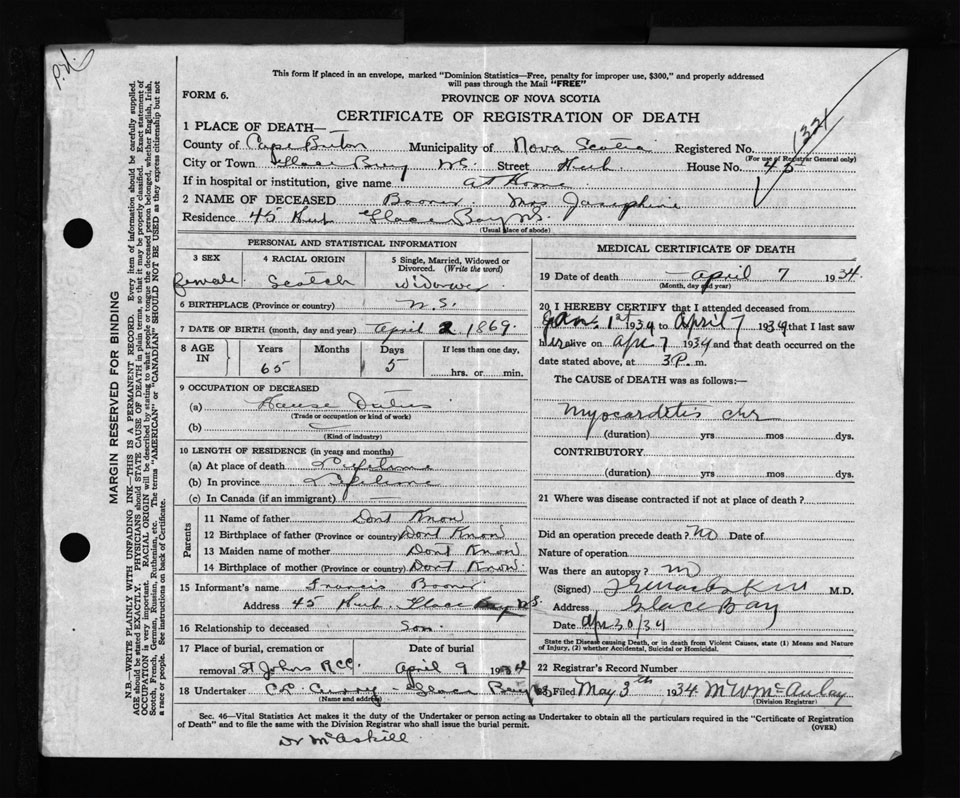 P.N.
This form if placed in an envelope, marked "Dominion Statistics—Free, penalty for improper use, $300," and properly addressed
will pass through the Mail "FREE"
FORM 6.
PROVINCE OF NOVA SCOTIA
CERTIFICATE OF REGISTRATION OF DEATH
1 PLACE OF DEATH—
County of Cape Breton Municipality of Nova Scotia Registered No. 1321
(For use of Registrar General only)
City or Town Glace Bay N.S. Street Hub House No. 45
If in hospital or institution, give name at Home
2 NAME OF DECEASED Booner Mrs Josephine
Residence 45 Hub Glace Bay N.S.
(Usual place of abode)
PERSONAL AND STATISTICAL INFORMATION
3 SEX 4 RACIAL ORIGIN 5 Single, Married, Widowed or Divorced. (Write the word)
female Scotch Widower
6 BIRTHPLACE (Province or country) N.S.
7 DATE OF BIRTH (month, day and year) April 2 1869.
8 AGE IN Years Months Days If less than one day,
65 5 hrs. or min.
9 OCCUPATION OF DECEASED
(a) House Duties
(Trade or occupation or kind of work)
(b)
(Kind of industry)
10 LENGTH OF RESIDENCE (in years and months)
(a) At place of death Lifetime
(b) In province Lifetime
(c) In Canada (if an immigrant)
Parents
11 Name of father Dont Know
12 Birthplace of father (Province or country) Dont Know
13 Maiden name of mother Dont Know
14 Birthplace of mother (Province or country) Dont Know
15 Informant's name Francis Booner
Address 45 Hub Glace Bay N.S.
16 Relationship to deceased Son
17 Place of burial, cremation or removal St Johns RCC Date of burial April 9 1934
18 Undertaker C.P. Curry - Glace Bay
(Name and address)
MEDICAL CERTIFICATE OF DEATH
19 Date of death April 7 1934.
(Month, day and year)
20 I HEREBY CERTIFY that I attended deceased from
Jan. 1st 1934 to April 7 1934 that I last saw
her alive on Apr 7 1934 and that death occurred on the
date stated above, at 3 P. m.
The CAUSE OF DEATH was as follows:—
Myocarditis chr
(duration) yrs mos dys.
CONTRIBUTORY
(duration) yrs mos dys.
21 Where was disease contracted if not at place of death?
Did an operation precede death? No Date of
Nature of operation
Was there an autopsy? no
(Signed) M.D.
Address Glace Bay
Date Apr 30/34
State the Disease causing Death, or in death from Violent Causes, state (1) Means and Nature
of Injury, (2) whether Accidental, Suicidal or Homicidal.
22 Registrar's Record Number
23 Filed May 3th 1934 M W McAulay
(Division Registrar)
Sec. 46—Vital Statistics Act makes it the duty of the Undertaker or person acting as Undertaker to obtain all the particulars required in the "Certificate of Registration
of Death" and to file the same with the Division Registrar who shall issue the burial permit.
(OVER)
Dr McAskill
MARGIN RESERVED FOR BINDING
N.B.—WRITE PLAINLY WITH UNFADING INK—THIS IS A PERMANENT RECORD. Every item of information should be carefully supplied.
AGE should be stated EXACTLY. PHYSICIANS should STATE CAUSE OF DEATH in plain terms, so that it may be properly classified. Exact statement of
OCCUPATION is very important. RACIAL ORIGIN will be described by stating to what people or tongue the deceased person belonged, whether English, Irish,
Scotch, French, German, Russian, Ruthenian, etc. The terms "AMERICAN" or "CANADIAN" SHOULD NOT BE USED as they express citizenship but not
a race or people. See instructions on back of Certificate.